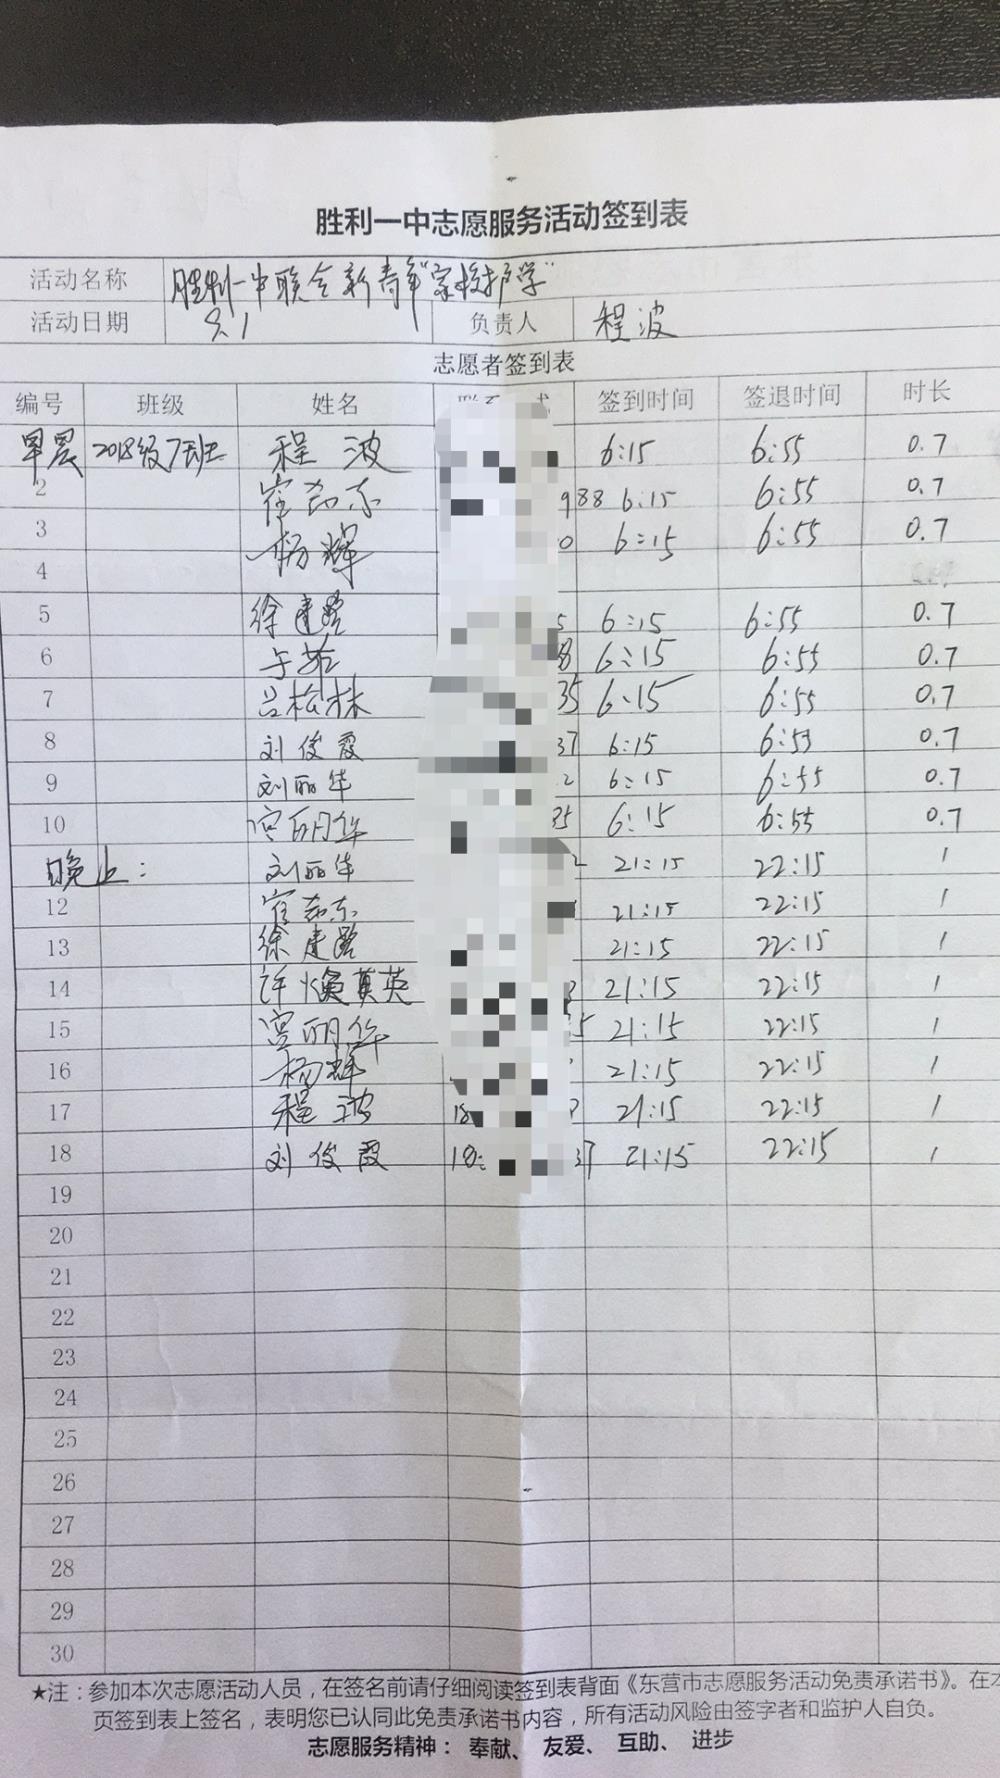 胜利一中志愿服务活动签到表
活动名称 胜利一中联合新青年"家校护学"
活动日期 9.1 负责人 程波
志愿者签到表
编号 班级 姓名 签到时间 签退时间 时长
早晨 2018级7班 程波 6:15 6:55 0.7
2 988 6:15 6:55 0.7
3 杨辉 0 6:15 6:55 0.7
4
5 徐建路 5 6:15 6:55 0.7
6 于茹 8 6:15 6:55 0.7
7 吕松林 35 6:15 6:55 0.7
8 刘俊霞 37 6:15 6:55 0.7
9 刘丽华 2 6:15 6:55 0.7
10 宫明华 35 6:15 6:55 0.7
晚上: 刘丽华 21:15 22:15 1
12 21:15 22:15 1
13 徐建路 21:15 22:15 1
14 许焕英 21:15 22:15 1
15 宫明华 5 21:15 22:15 1
16 杨辉 21:15 22:15 1
17 程波 18 21:15 22:15 1
18 刘俊霞 18 37 21:15 22:15 1
19
20
21
22
23
24
25
26
27
28
29
30
★注:参加本次志愿活动人员,在签名前请仔细阅读签到表背面《东营市志愿服务活动免责承诺书》。在本
页签到表上签名,表明您已认同此免责承诺书内容,所有活动风险由签字者和监护人自负。
志愿服务精神: 奉献、 友爱、 互助、 进步